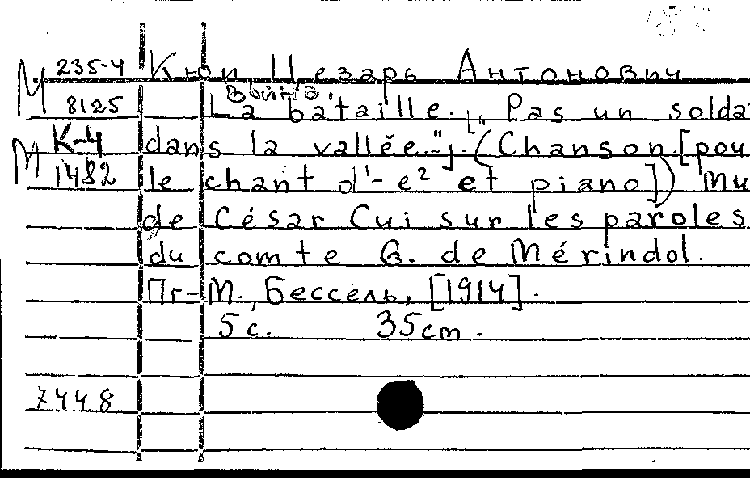 М 235-4 Кюи Цезарь Антонович
8125 Война.
La bataille. „Pas un solda
М К-4 dans la vallée..."; (Chanson [pou
1482 le chant d'-e² et piano]) Mu
de César Cui sur les paroles
du comte G. de Mérindol.
Пг-М., Бессель, [1914].
5 с. 35 cm.
7448